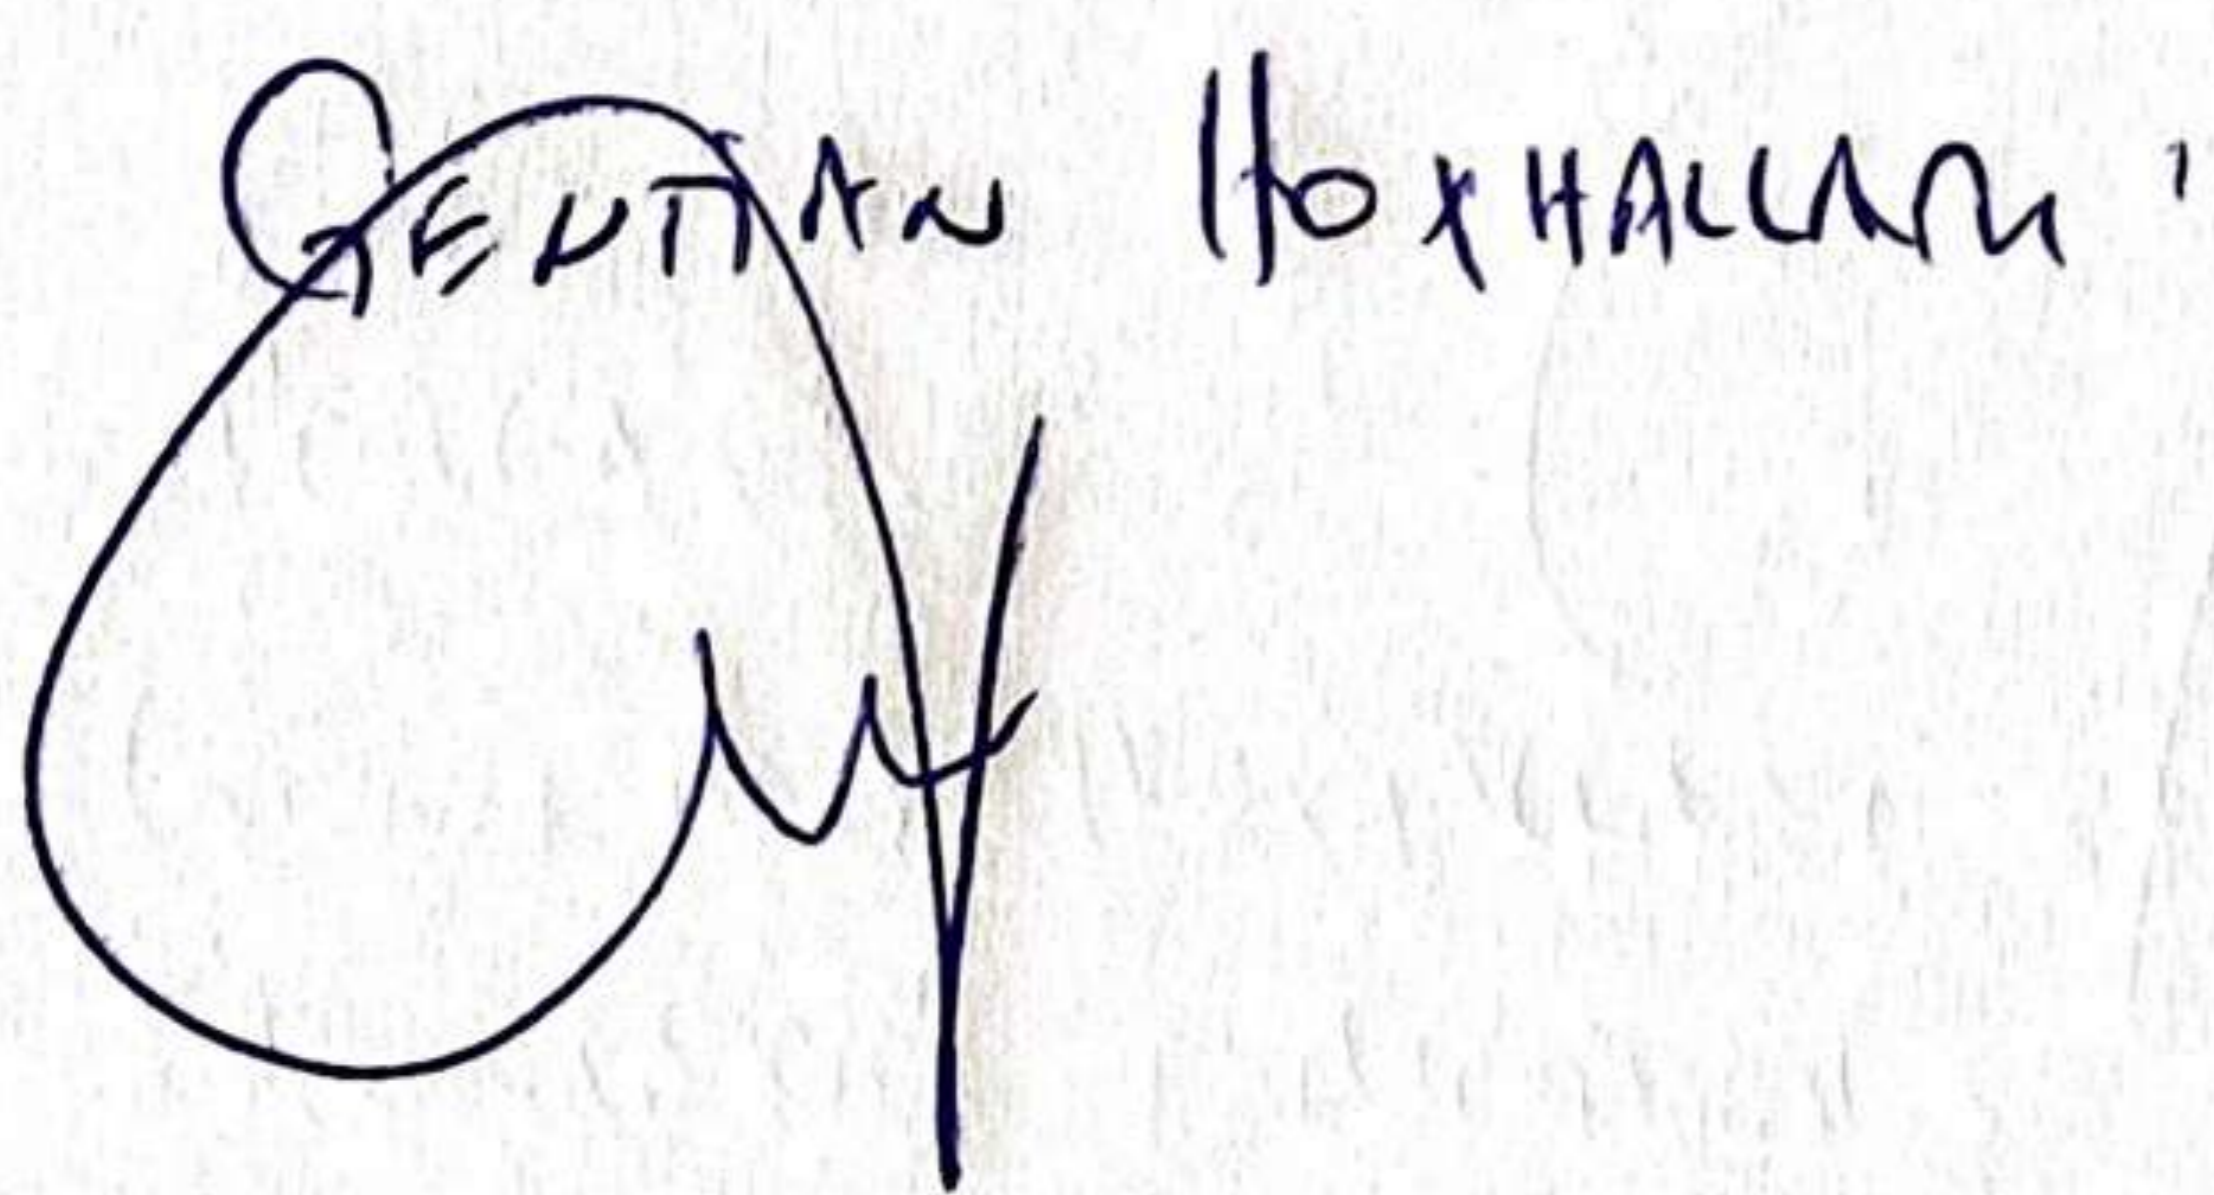 GENTIAN HOXHALLARI